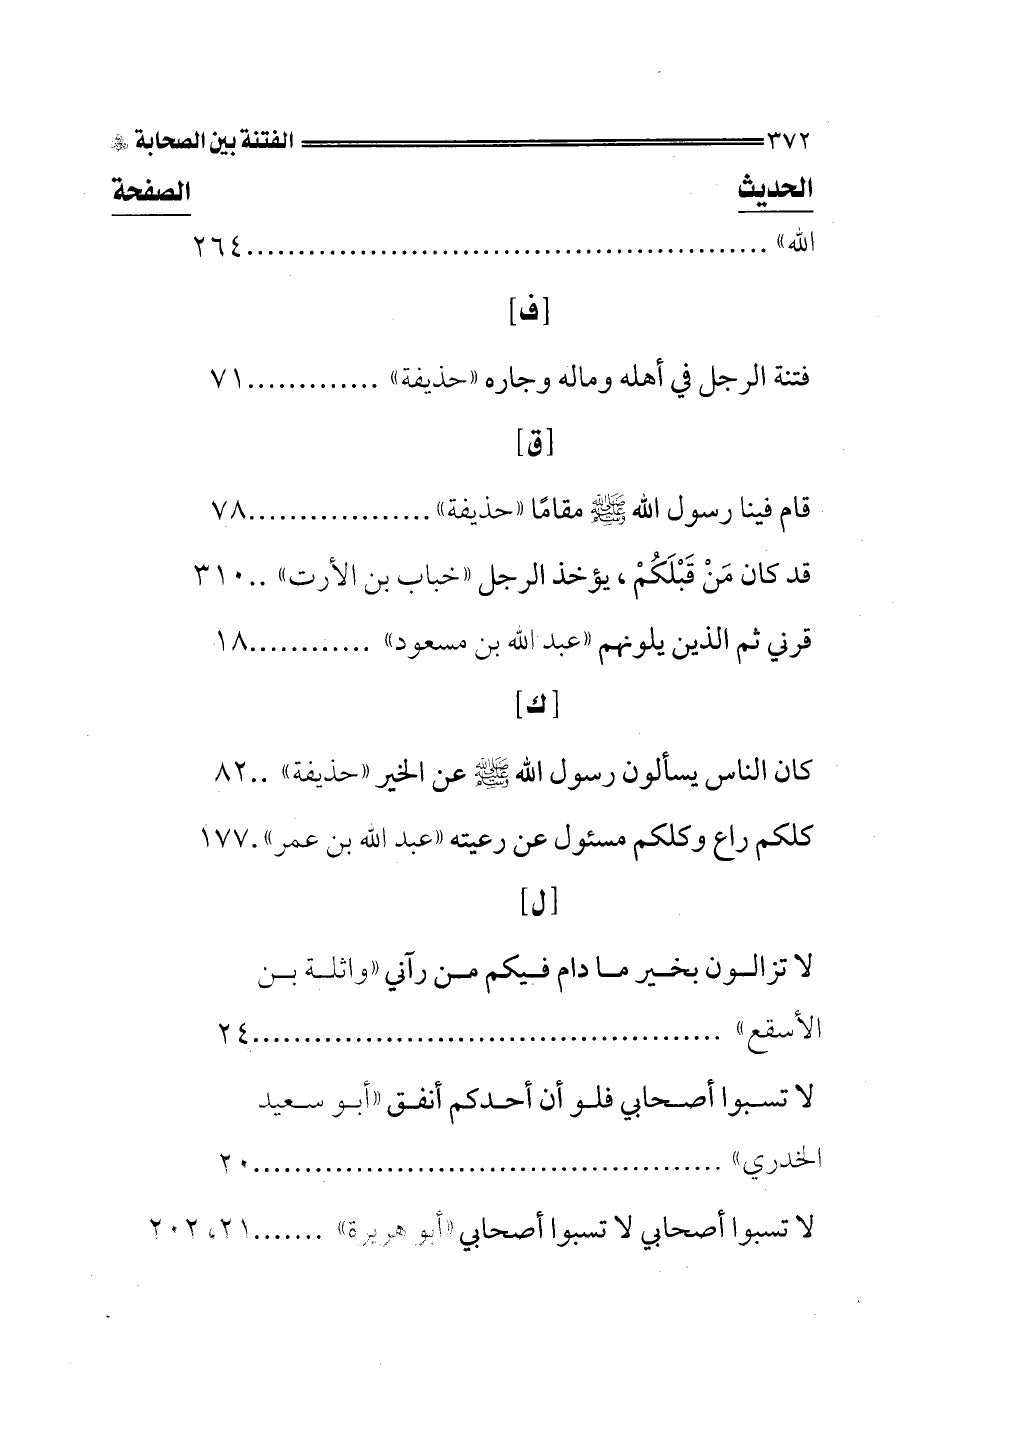 ٣٧٢ الفتنة بين الصحابة
الحديث الصفحة
الله» ..................................................٢٦٤
[ف]
فتنة الرجل في أهله وماله وجاره «حذيفة» .............٧١
[ق]
قام فينا رسول الله ﷺ مقامًا «حذيفة»..................٧٨
قد كان مَنْ قَبْلَكُمْ ، يؤخذ الرجل «خباب بن الأرت» ..٣١٠
قرني ثم الذين يلونهم «عبد الله بن مسعود» ............١٨
[ك]
كان الناس يسألون رسول الله ﷺ عن الخير «حذيفة» ..٨٢
كلكم راع وكلكم مسئول عن رعيته «عبد الله بن عمر».١٧٧
[ل]
لا تزالون بخير ما دام فيكم من رآني «واثلة بن
الأسقع» ..............................................٢٤
لا تسبوا أصحابي فلو أن أحدكم أنفق «أبو سعيد
الخدري» ..............................................٢٠
لا تسبوا أصحابي لا تسبوا أصحابي «أبو هريرة» .......٢١، ٢٠٢